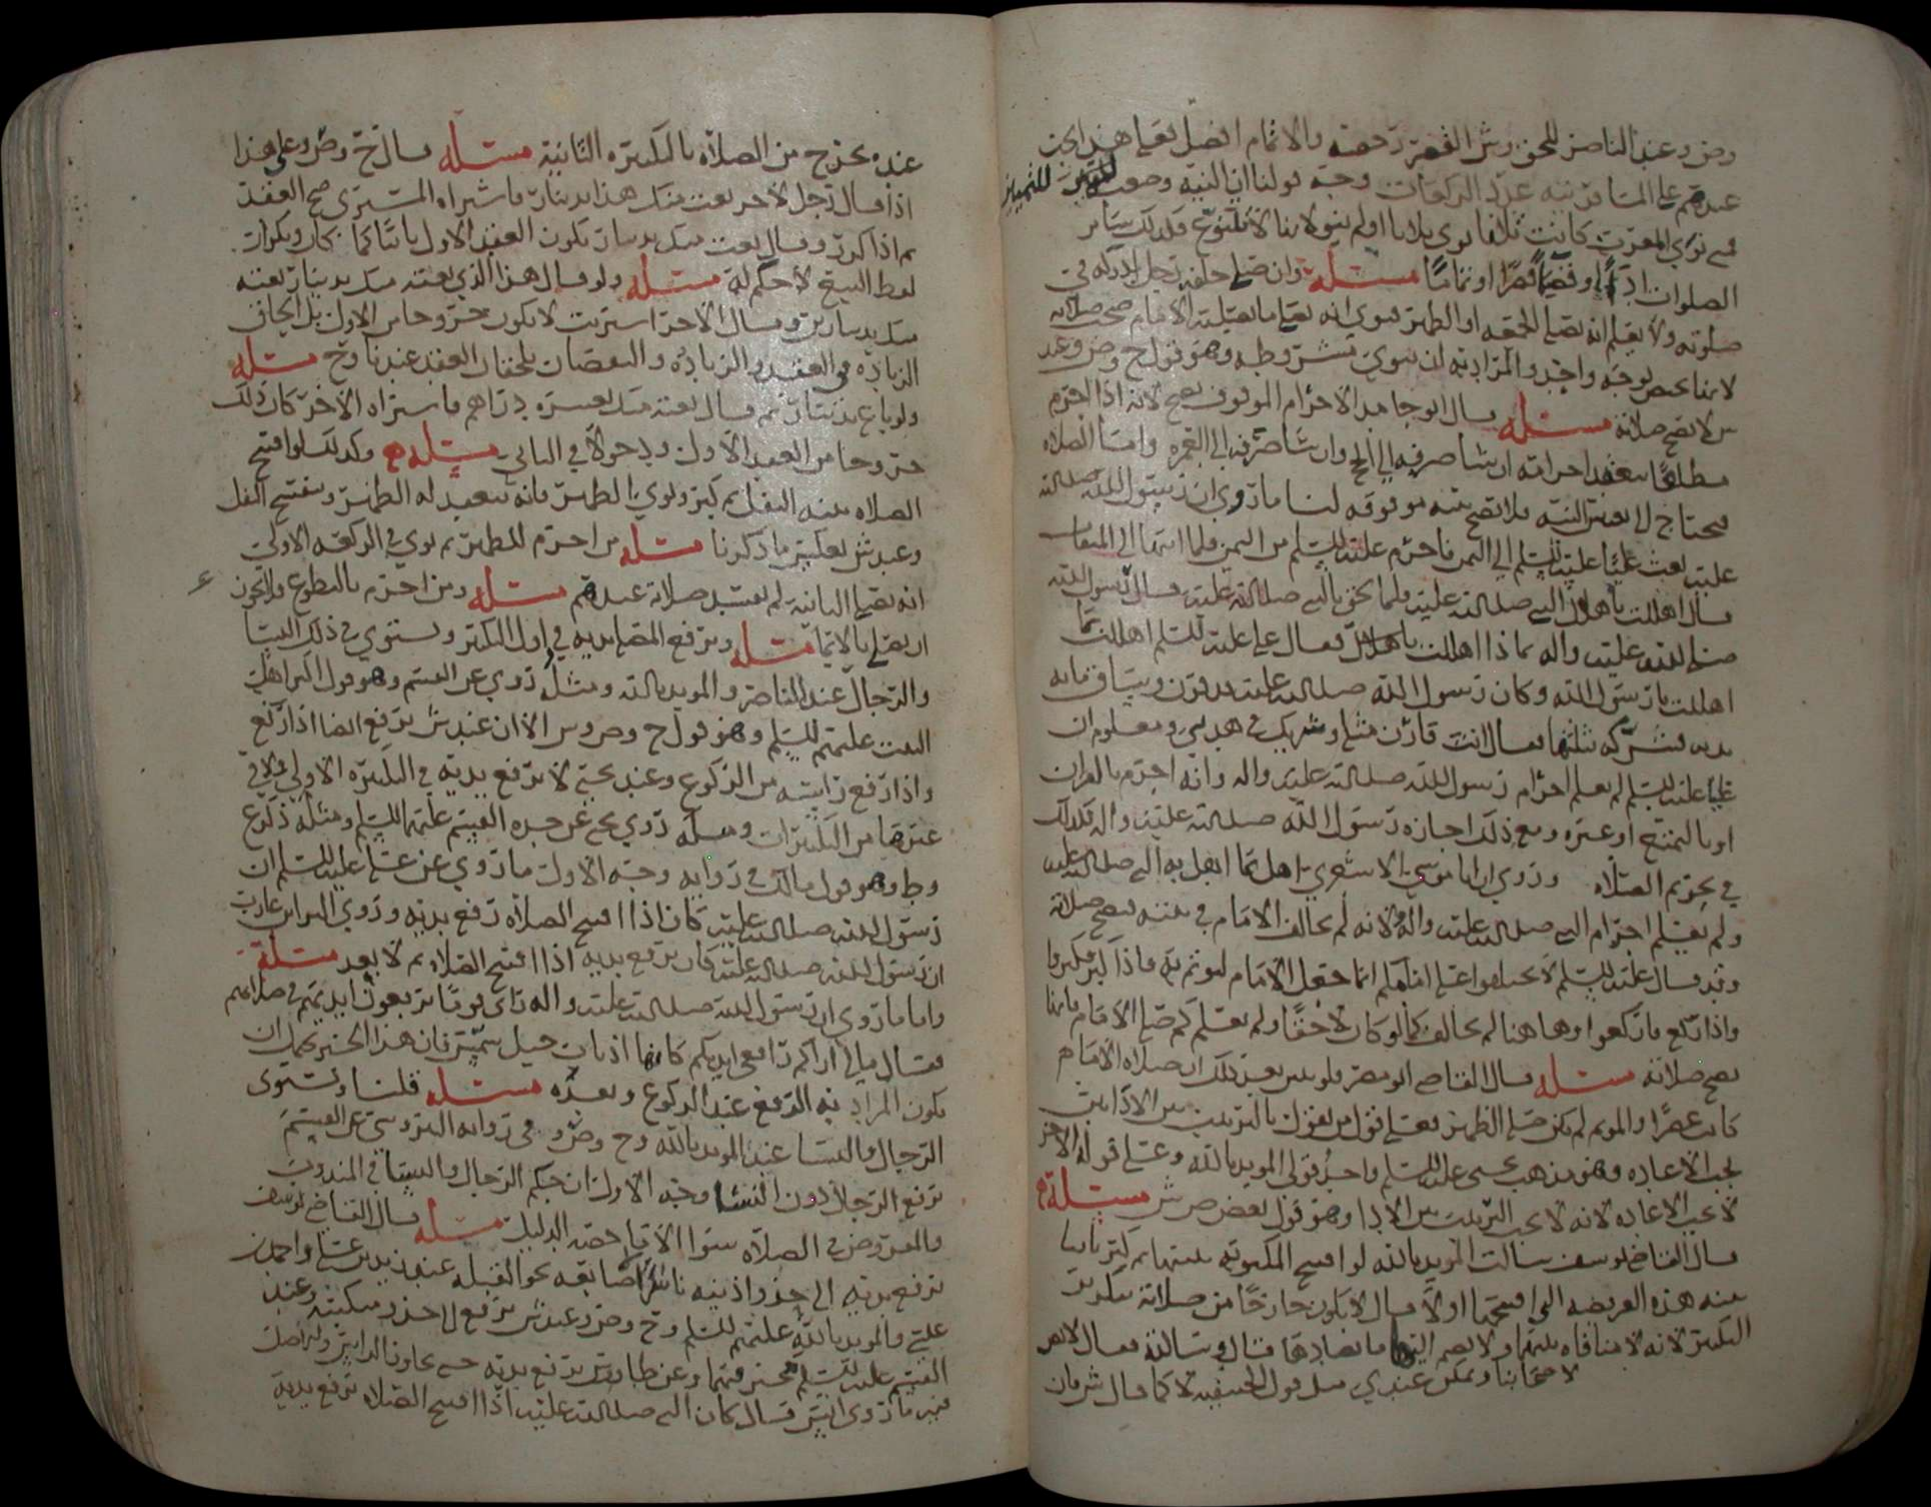 وص وعند الناصر للحق وش القصر رخصة والاتمام افضل فعلى هذا يجب
عندهم على المسافر نية عدد الركعات وجه قولنا ان النية وضعت للتمييز
فمتى نوى المغرب كانت ثلاثا نوى ثلاثا او لم ينو لانها لا تتنوع وكذلك سائر
الصلوات اداء او قضاء قصرا او تماما مسئلة وان صلى خلف رجل ادركه في
صلوته ولا يعلم انه يصلي الجمعة او الظهر فنوى انه يصلي ما يصليه الامام صحت صلاته
لانهما بوجه واحد والمراد به ان ينوي بشروطه وهو قول ح وص وعند
ش لا تصح صلاته مسئلة قال ابو جا الاحرام الموقوف يصح لانه اذا احرم
مطلقا ينعقد احرامه ان شا صرفه الى الحج وان شا صرفه الى العمرة واما الصلاة
فيحتاج الى تعيين النية فلا تصح بنية موقوفة لنا ما روي ان رسول الله صلى الله
عليه بعث عليا عليه السلم الى اليمن فاحرم عليه السلم من اليمن فلما انتها الى الميقات
قال اهللت باهلال النبي صلى الله عليه فلما لحق بالنبي صلى الله عليه قال رسول الله
صلى الله عليه واله بماذا اهللت فقال علي عليه السلم اهللت بما
اهللت يا رسول الله وكان رسول الله صلى الله عليه قد قرن وساق مائة
بدنة فشركه بثلثها فقال انت قارن مثلي وشريكي في هديي ومعلوم ان
عليا عليه السلم لم يعلم احرام رسول الله صلى الله عليه واله وانه احرم بالقران
او بالتمتع او غيره ومع ذلك اجازه رسول الله صلى الله عليه واله فكذلك
في تحريم الصلاة وروي ان ابا موسى الاشعري اهل بما اهل به النبي صلى الله عليه
ولم يعلم احرام النبي صلى الله عليه واله ولانه لم يخالف الامام في نيته فتصح صلاته
وقد قال عليه السلم لا تختلفوا على امامكم انما جعل الامام ليؤتم به فاذا كبر فكبروا
واذا ركع فاركعوا وهاهنا لم يخالف كما لو كان لاحقا ولم يعلم كم صلى الامام فانها
تصح صلاته مسئلة قال القاضي ابو مضر فلو تبين بعد ذلك ان صلاة الامام
كانت عصرا والمؤتم لم يكن صلى الظهر فعلى قول من يقول بالترتيب بين الاداين
يجب الاعادة وهو مذهب يحيى عليه السلم واحد قولي المويد بالله وعلى قوله الاخر
لا يجب الاعادة لانه لا يجب الترتيب بين الادا وهو قول بعض ص ش مسئلة
قال القاضي يوسف سالت المويد بالله لو افتتح المكتوبة بنيتها ثم كبر ثانيا
بنية هذه الفريضة التي افتتحها اولا قال لا يكون خارجا من صلاته بتكرير
التكبير لانه لا منافاة بينهما ولا يضم اليها ما يضادها قال وسالته فقال لا نص
لاصحابنا ويمكن عندي مثل قول الحنيفية لا كما قال ش فان
عنده يخرج من الصلاة بالتكبيرة الثانية مسئلة قال ح وص وعلى هذا
اذا قال رجل لاخر بعت منك هذا بدينار فاشتراه المشتري صح العقد
ثم اذا كرر وقال بعت منك بدينار يكون العقد الاول باقيا كما كان وتكرار
لفظ البيع لا حكم له مسئلة ولو قال هذا الذي بعته منك بدينار بعته
منك بدينارين وقال الاخر اشتريت لا يكون خروجا من الاول بل الحاق
الزيادة في العقد والزيادة والنقصان يلحقان العقد عندنا وح مسئلة
ولو باع بدينار ثم قال بعته منك بعشرة دراهم فاشتراه الاخر كان ذلك
خروجا من العقد الاول ودخولا في الثاني مسئلة وكذلك لو افتتح
الصلاة بنية النفل ثم كبر ونوى الظهر فانه ينعقد له الظهر ويفتتح النفل
وعند ش بعكس ما ذكرنا مسئلة من احرم للظهر ثم نوى في الركعة الاولى
انه يصلي الثانية لم تفسد صلاته عندهم مسئلة ومن احرم بالتطوع فلا يجوز
ان يصلي بالايما مسئلة ويرفع المصلي يديه في اول التكبير ويستوي في ذلك النسا
والرجال عند الناصر والمويد بالله ومثله روي عن القسم وهو قول اكثر اهل
البيت عليهم السلم وهو قول ح وص وش الا ان عند ش يرفع ايضا اذا ركع
واذا رفع راسه من الركوع وعند يحيى لا يرفع يديه في التكبيرة الاولى ولا في
غيرها من التكبيرات ومثله روي يحيى عن جده القسم عليهما السلم ومثله ذكر ع
وط وهو قول مالك في رواية وجه الاول ما روي عن علي عليه السلم ان
رسول الله صلى الله عليه كان اذا افتتح الصلاة رفع يديه وروى البراء بن عازب
ان رسول الله صلى الله عليه كان يرفع يديه اذا افتتح الصلاة ثم لا يعد مسئلة
واما ما روي ان رسول الله صلى الله عليه واله راى قوما يرفعون ايديهم في صلاتهم
فقال مالي اراكم رافعي ايديكم كانها اذناب خيل شمس فان هذا الخبر يحتمل ان
يكون المراد به الرفع عند الركوع وبعده مسئلة قلنا ويستوى
الرجال والنسا عند المويد بالله وح وص و في رواية النيروسي عن القسم
يرفع الرجال دون النسا وجه الاول ان حكم الرجال والنسا في المندوب
والمفروض في الصلاة سوا الا ما خصه الدليل مسئلة قال القاضي يوسف
يرفع يديه الى حذو اذنيه ناشرا اصابعه نحو القبلة عند زيد بن علي واحمد بن
عيسى والمويد بالله عليهم السلم وح وص وعند ش يرفع الى حذو منكبيه وعند
القسم عليه السلم مخير فيهما وعن طاووس يرفع يديه حتى يجاوز بها الراس ولنا
خبر ما روى انس قال كان النبي صلى الله عليه اذا افتتح الصلاة يرفع يديه